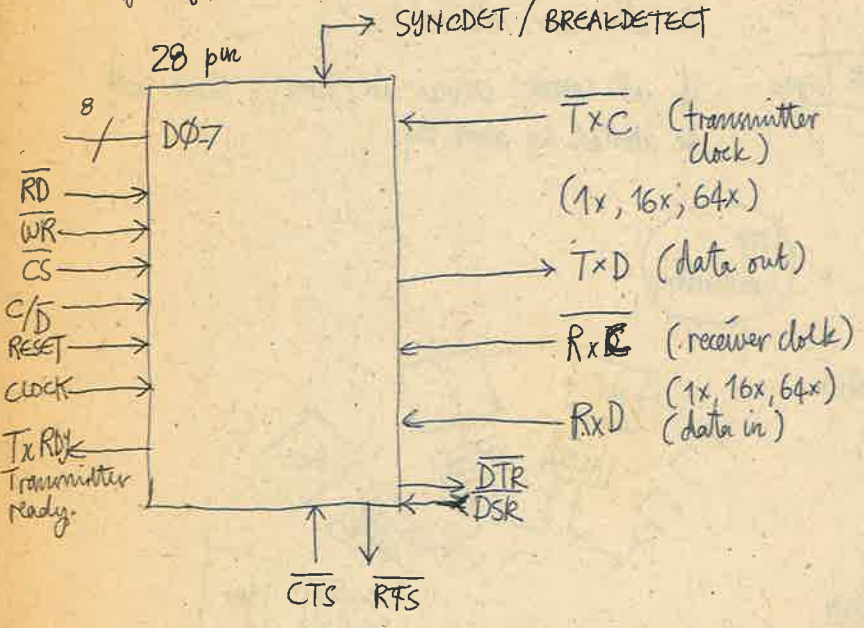 SYNCDET / BREAKDETECT
28 pin
8
DØ-7
RD
WR
CS
C/D
RESET
CLOCK
TxRDY
Transmitter
ready.
TxC (transmitter
clock)
(1x, 16x, 64x)
TxD (data out)
RxC (receiver clolk)
(1x, 16x, 64x)
RxD (data in)
DTR
DSR
CTS RTS